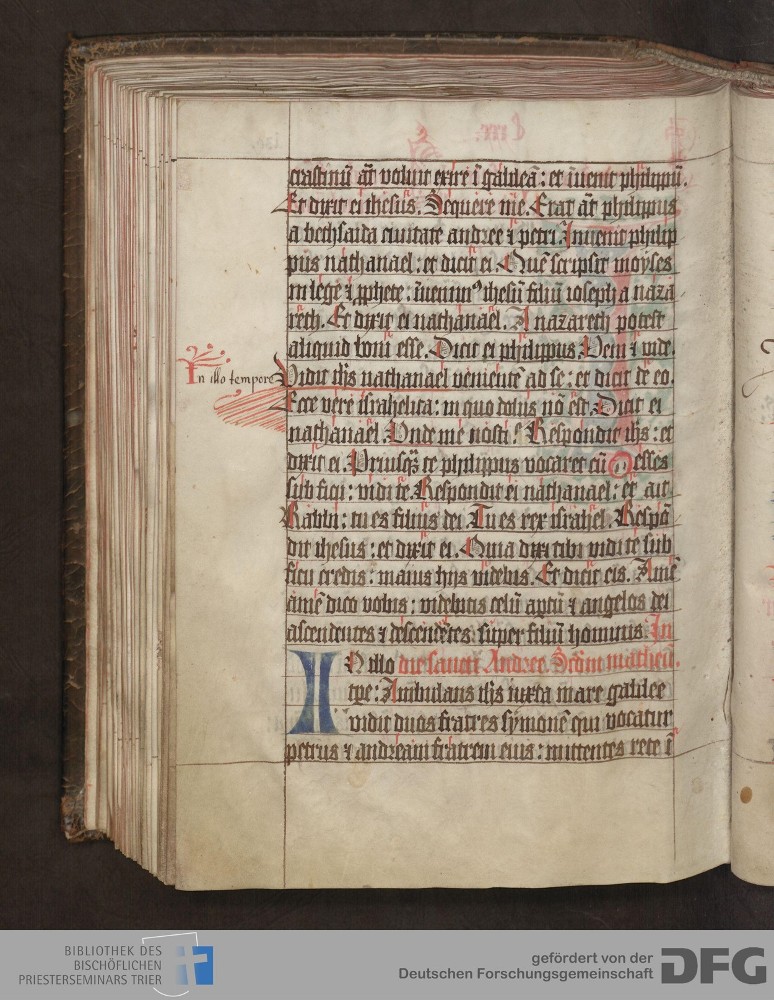 crastinū aūt voluit exire ī galileā : et īuenit philippū.
Et dixit ei ihesus. Sequere me. Erat aūt philippus
a bethsaida ciuitate andree ⁊ petri. Inuenit philip
pus nathanael : et dicit ei. Quē scripsit moyses
in lege ⁊ ꝓphete : īuenimꝰ ihesū filiū ioseph a naza
reth. Et dixit ei nathanael. A nazareth potest
aliquid boni esse. Dicit ei philippus. Veni ⁊ vide.
In illo tempore
Vidit ihs nathanael venientē ad se : et dicit de eo.
Ecce vere israhelita : in quo dolus nō est. Dicit ei
nathanael. Unde me nosti? Respondit ihs : et
dixit ei. Priusq̄ te philippus vocaret cū esses
sub ficu : vidi te. Respondit ei nathanael : et ait
Rabbi : tu es filius dei. Tu es rex israhel. Respō
dit ihesus : et dixit ei. Quia dixi tibi vidi te sub
ficu credis : maius hijs videbis. Et dicit eis. Amē
amē dico vobis : videbitis celū aptū ⁊ angelos dei
ascendentes ⁊ descendētes super filiū hominis. In
IN illo die sancti Andree. Scdm matheū.
tpe : Ambulans ihs iuxta mare galilee
vidit duos fratres symonē qui vocatur
petrus ⁊ andream fratrem eius : mittentes rete ī
BIBLIOTHEK DES
BISCHÖFLICHEN
PRIESTERSEMINARS TRIER
gefördert von der
Deutschen Forschungsgemeinschaft
DFG